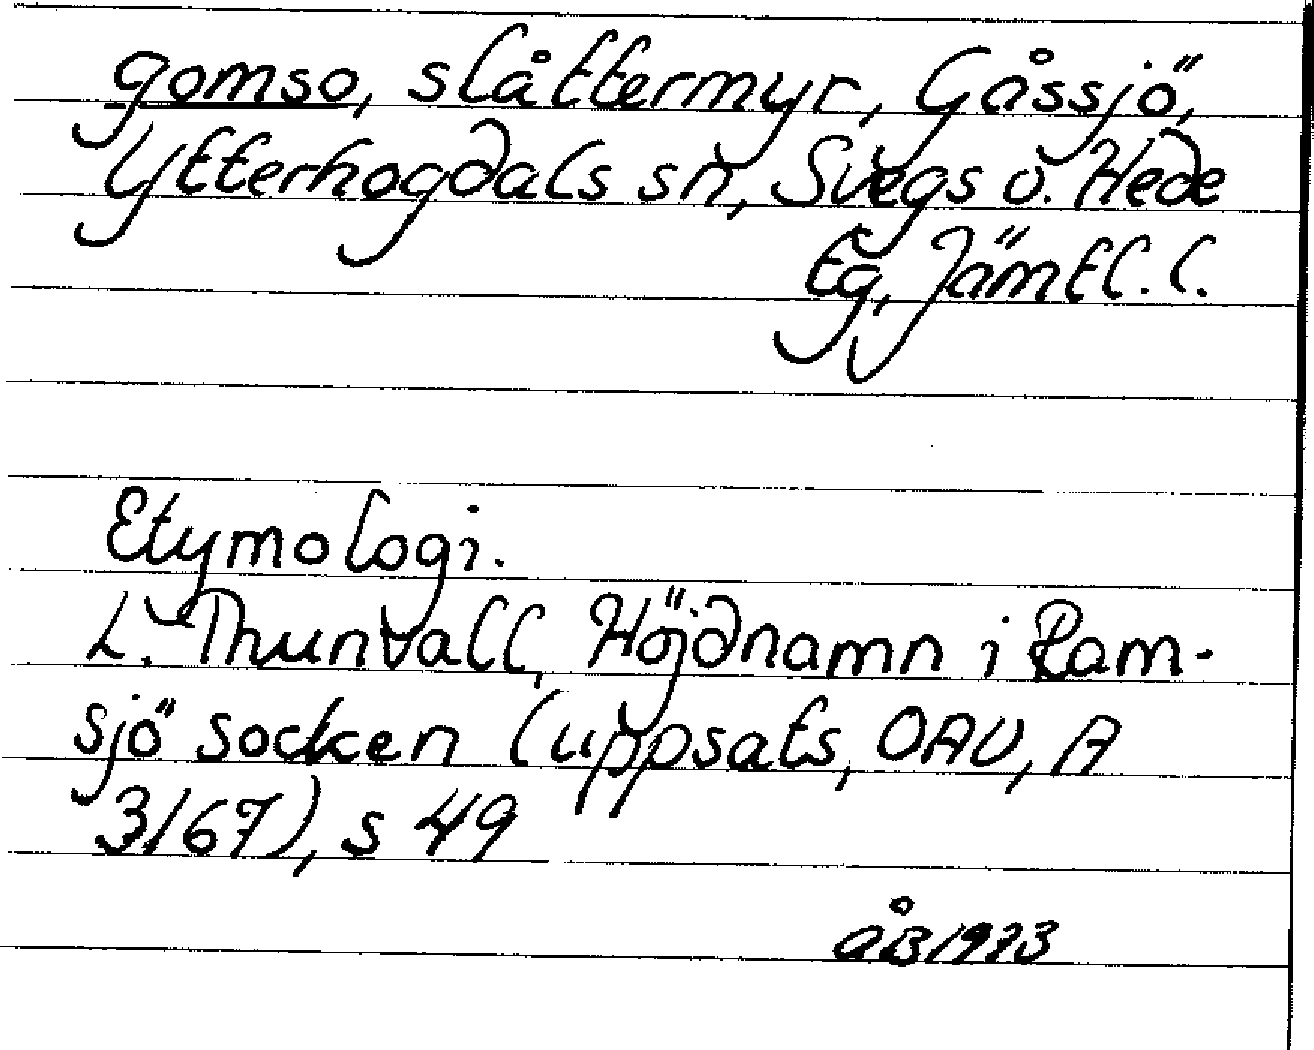 gomso, slåttermyr, Gåssjö,
Ytterhogdals sn, Svegs o. Hede
tg, Jämtl. l.
Etymologi.
L. Thunvall, Höjdnamn i Ram-
sjö socken (uppsats, OAU, A
3/67), s 49
åB 1973